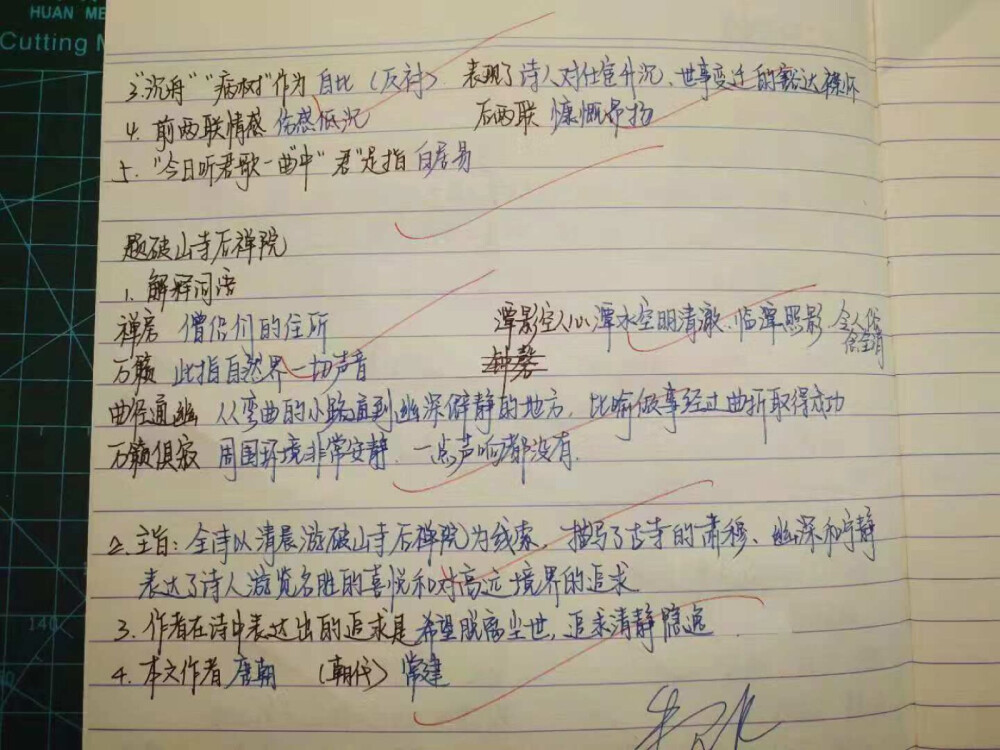 HUAN ME
Cutting M
3."沉舟""病树"作为 自比(反衬) 表现了诗人对仕宦升沉、世事变迁的豁达襟怀
4. 前两联情感 伤感低沉 后两联 慷慨昂扬
5. "今日听君歌一曲"中"君"是指 白居易
题破山寺后禅院
1. 解释词语
禅房 僧侣们的住所 潭影空人心 潭水空明清澈、临潭照影 令人俗
念全消
万籁 此指自然界一切声音 钟磬
曲径通幽 从弯曲的小路直到幽深僻静的地方,比喻做事经过曲折取得成功
万籁俱寂 周围环境非常安静、一点声响都没有.
2. 主旨:全诗以清晨游破山寺后禅院为线索,描写了古寺的肃穆、幽深和宁静
表达了诗人游览名胜的喜悦和对高远境界的追求
3. 作者在诗中表达出的追求是 希望脱离尘世,追求清静隐逸
140
4. 本文作者 唐朝 (朝代) 常建